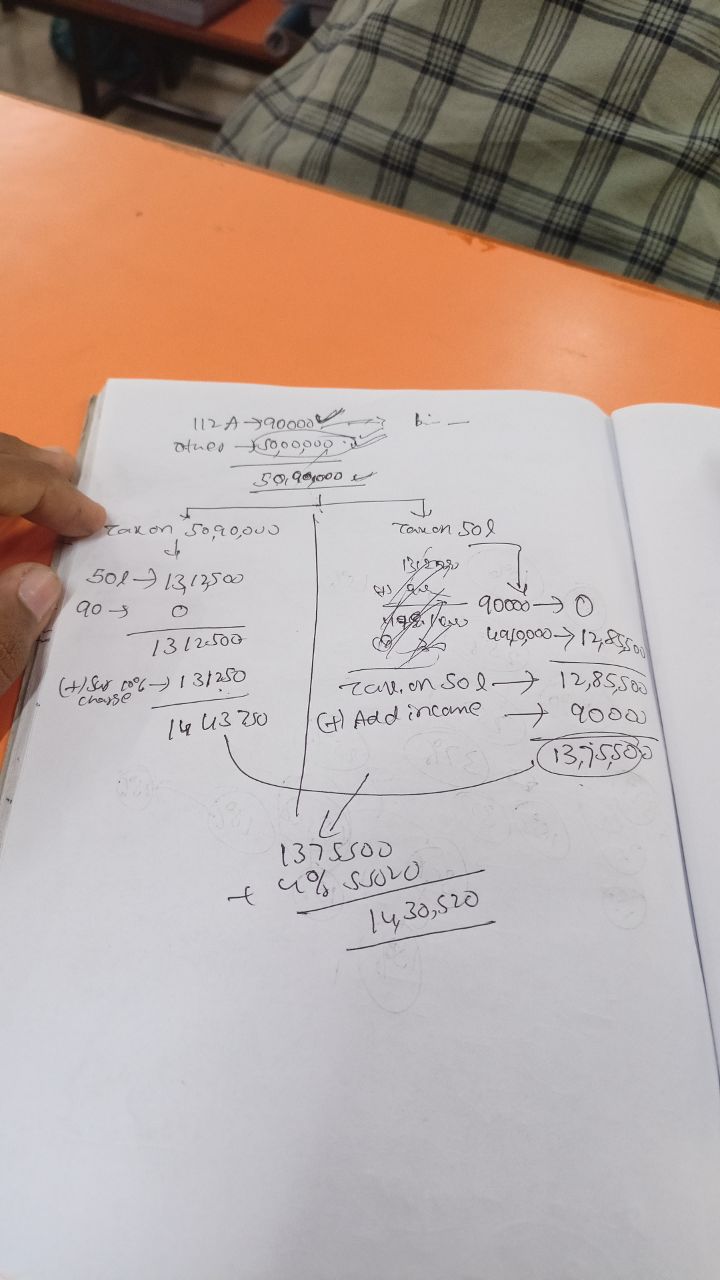 112A → 90000
others → 50,00,000
50,90,000
Tax on 50,90,000
50l → 13,12,500
90 → 0
1312500
(+) Sur 10% → 131250
charge
1443750
Tax on 50l
90000 → 0
4910,000 → 12,85,500
Tax on 50l → 12,85,500
(+) Add income → 90000
13,75,500
1375500
+ 4% 55020
14,30,520